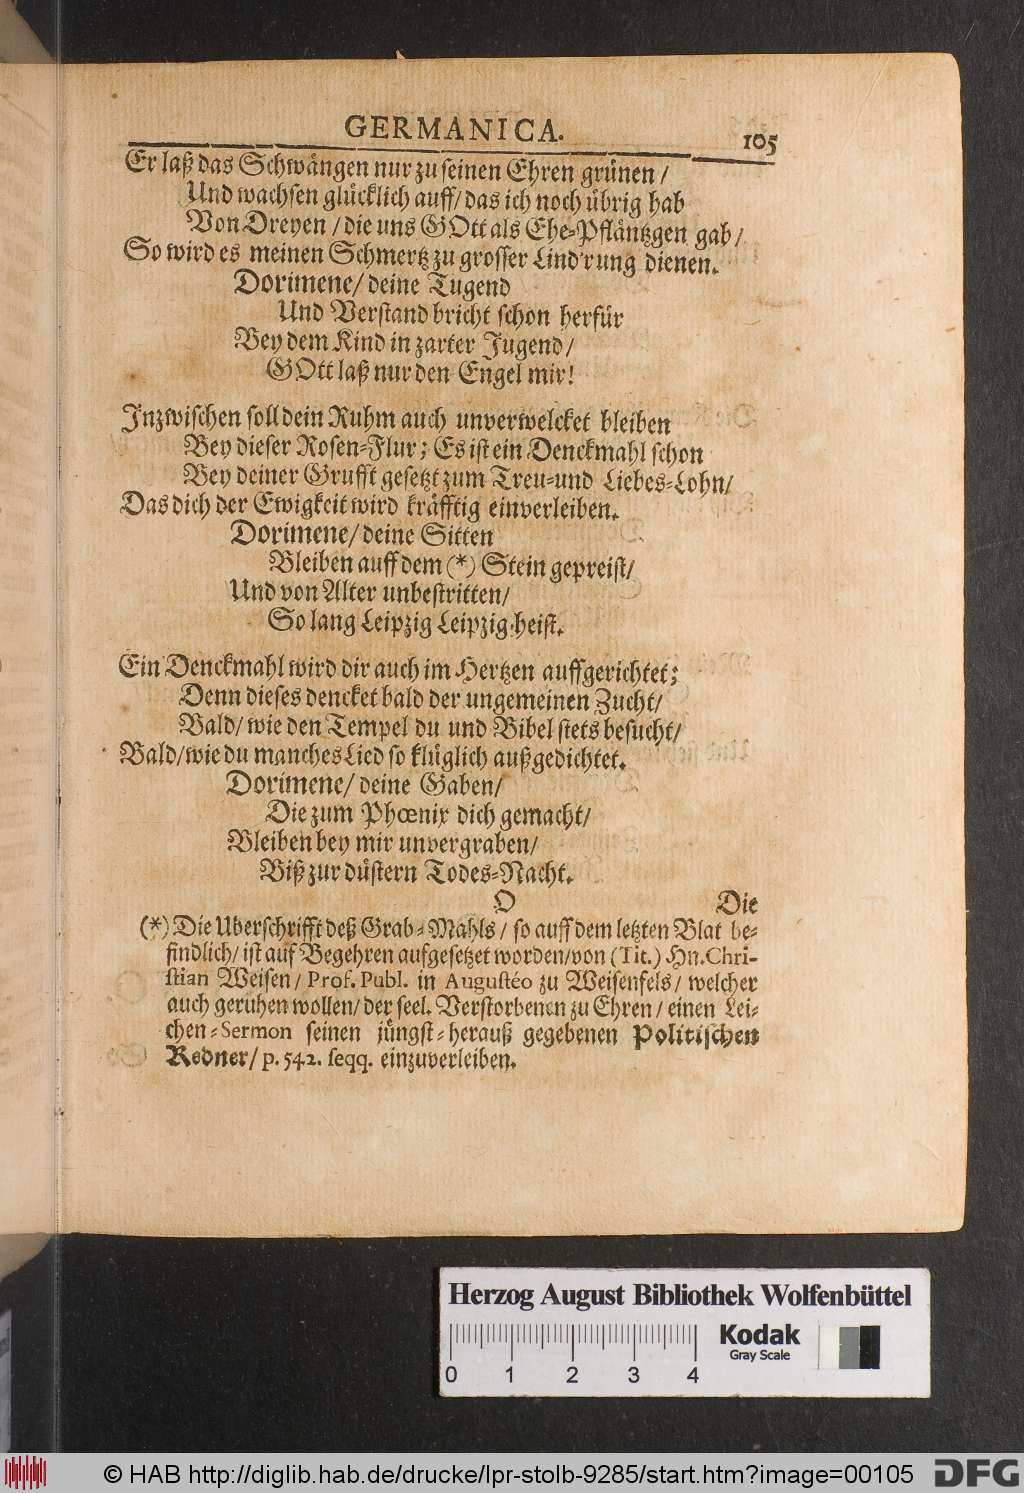 GERMANICA. 105
Er laß das Schwängen nur zu seinen Ehren grünen /
Und wachsen glücklich auff / das ich noch übrig hab
Von Dreyen / die uns GOtt als Ehe-Pfläntzgen gab /
So wird es meinen Schmertz zu grosser Lind'rung dienen.
Dorimene / deine Tugend
Und Verstand bricht schon herfür
Bey dem Kind in zarter Jugend /
GOtt laß nur den Engel mir!
Inzwischen soll dein Ruhm auch unverwelcket bleiben
Bey dieser Rosen-Flur; Es ist ein Denckmahl schon
Bey deiner Grufft gesetzt zum Treu-und Liebes-Lohn /
Das dich der Ewigkeit wird kräfftig einverleiben.
Dorimene / deine Sitten
Bleiben auff dem (*) Stein gepreist /
Und von Alter unbestritten /
So lang Leipzig Leipzig heist.
Ein Denckmahl wird dir auch im Hertzen auffgerichtet;
Denn dieses dencket bald der ungemeinen Zucht /
Bald / wie den Tempel du und Bibel stets besucht /
Bald / wie du manches Lied so klüglich außgedichtet.
Dorimene / deine Gaben /
Die zum Phœnix dich gemacht /
Bleiben bey mir unvergraben /
Biß zur düstern Todes-Nacht.
O Die
(*) Die Uberschrifft deß Grab-Mahls / so auff dem letzten Blat be-
findlich / ist auf Begehren aufgesetzet worden / von (Tit.) Hn. Chri-
stian Weisen / Prof. Publ. in Augustéo zu Weisenfels / welcher
auch geruhen wollen / der seel. Verstorbenen zu Ehren / einen Lei-
chen-Sermon seinen jüngst-herauß gegebenen Politischen
Redner / p. 542. seqq. einzuverleiben.
Herzog August Bibliothek Wolfenbüttel
Kodak
Gray Scale
0 1 2 3 4
© HAB http://diglib.hab.de/drucke/lpr-stolb-9285/start.htm?image=00105 DFG